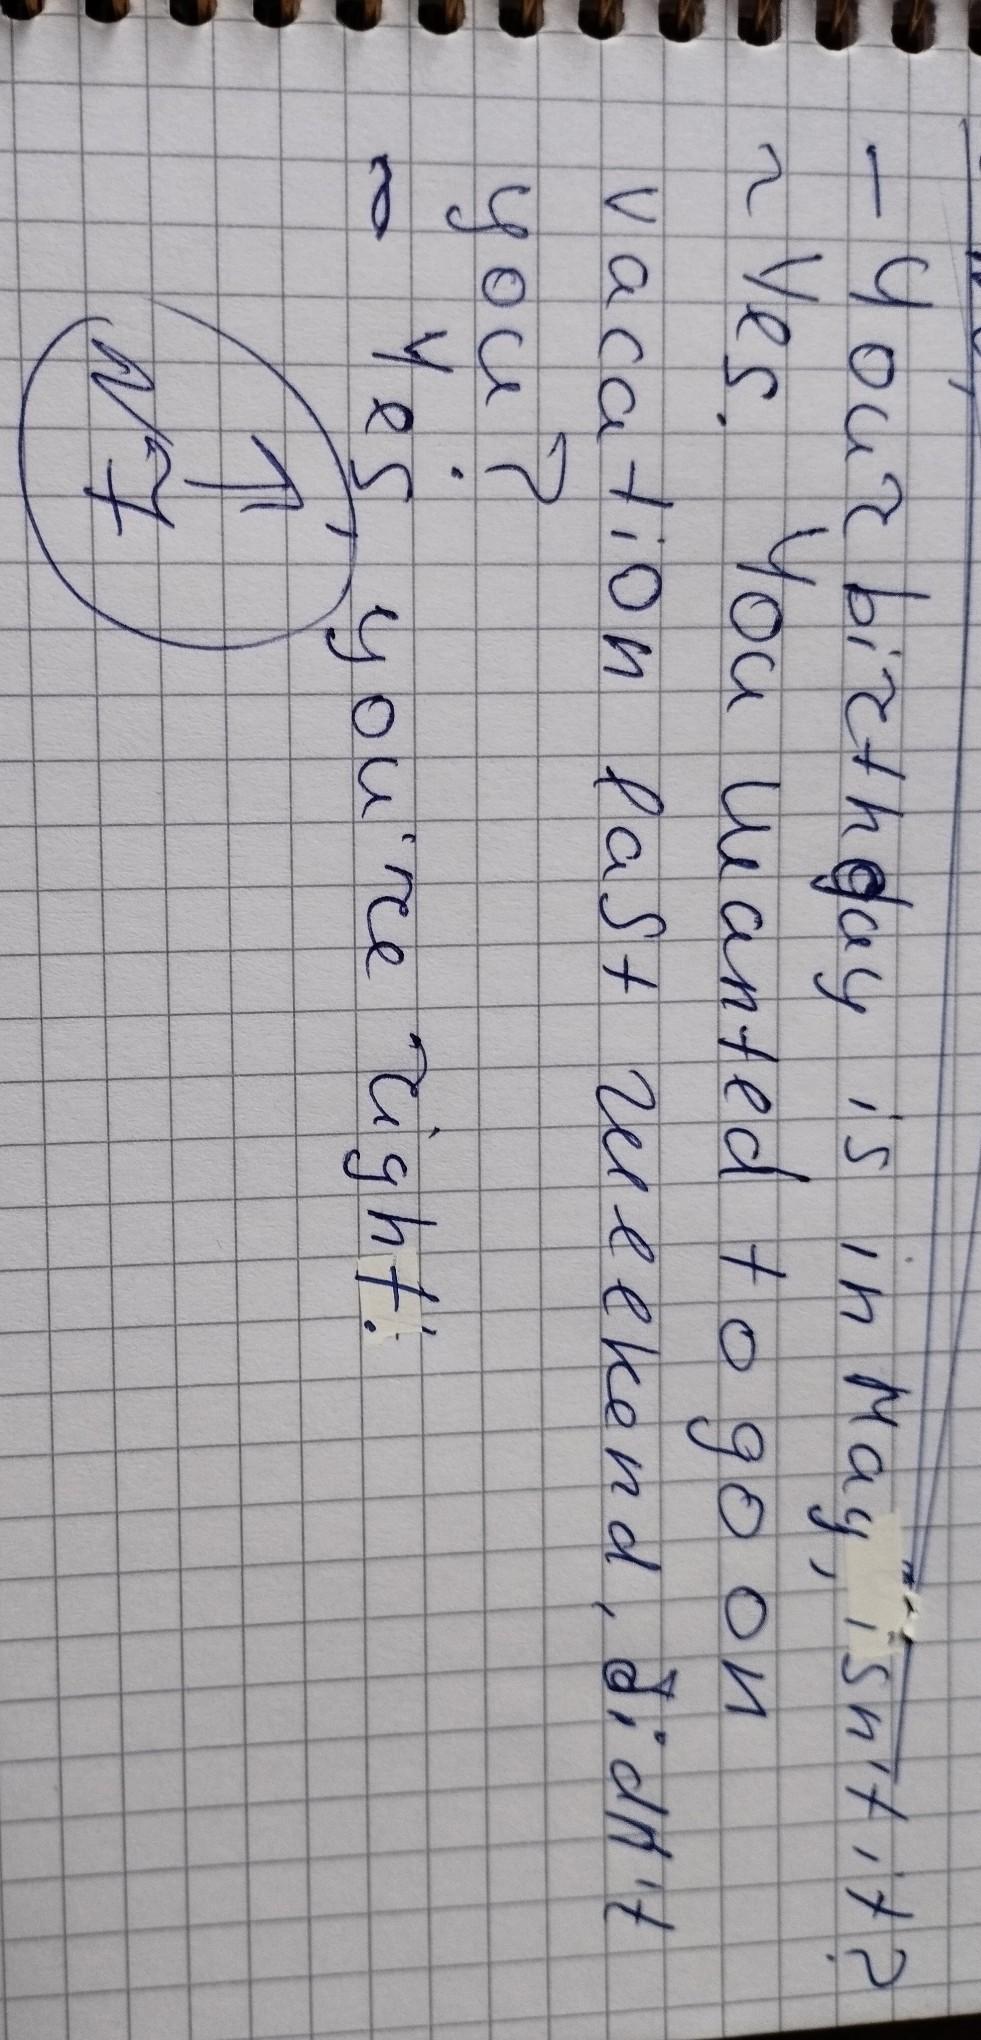 - Your birthday is in May, isn't it?
~ Yes. You wanted to go on
vacation last weekend, didn't
you?
- Yes, you're right.
1
№7